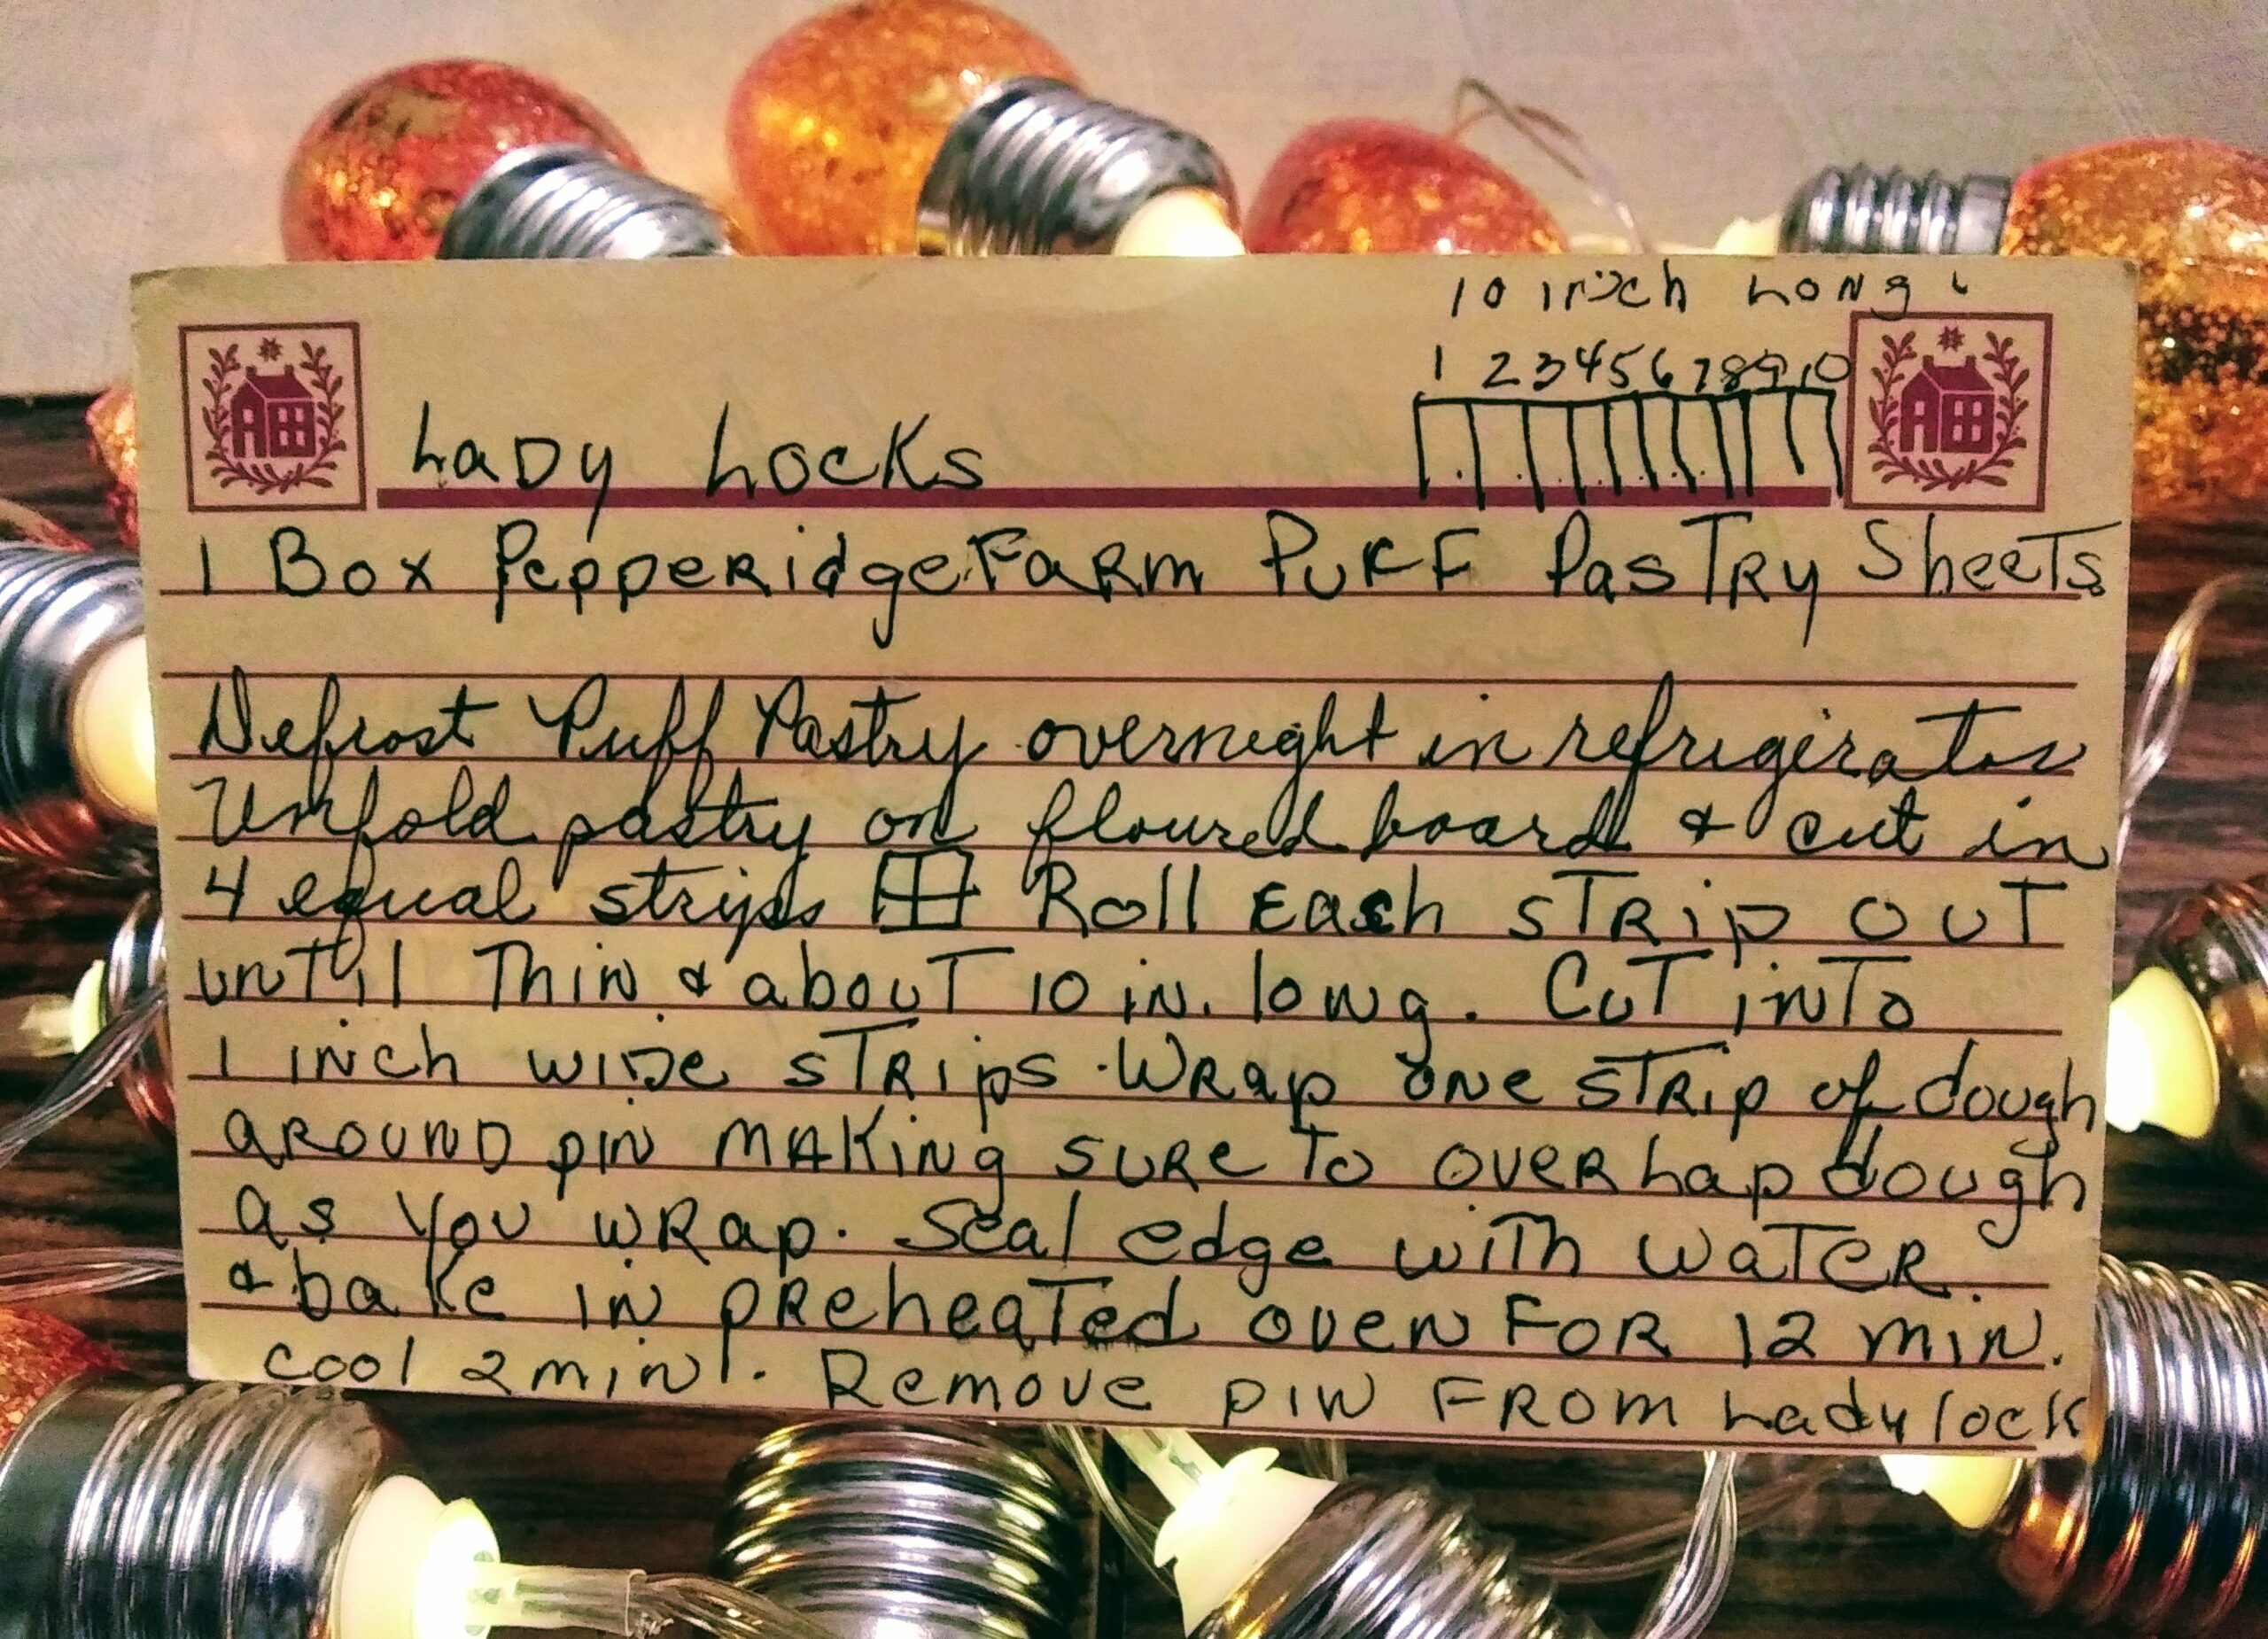 10 inch Long
1 2 3 4 5 6 7 8 9 10
Lady Locks
1 Box Pepperidge Farm Puff Pastry Sheets
Defrost Puff Pastry overnight in refrigerator
Unfold pastry on floured board & cut in
4 equal strips Roll Each STRip OUT
unTil Thin & abouT 10 in. long. CuT inTo
1 inch wide sTRips. Wrap one STRip of dough
around pin making sure To overlap dough
as you wrap. Seal edge with waTeR
& bake in preheaTed oven FOR 12 min.
cool 2 min. Remove pin FROM Lady lock